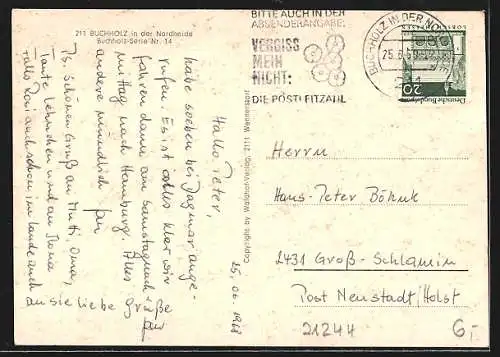 211 BUCHHOLZ in der Nordheide
Buchholz-Serie Nr. 14
BITTE AUCH IN DER
ABSENDERANGABE:
VERGISS
MEIN
NICHT:
DIE POSTLEITZAHL
BUCHHOLZ IN DER
25.6.
Deutsche Bundespost
20
25.06.1968
Hallo Peter,
habe soeben bei Dagmar ange-
rufen. Es ist alles klar wir
fahren dann am Samstagnach-
mittag nach Hamburg. Alles
andere mündlich.
für
an sie liebe Grüße
Ps. Schönen Gruß an Mutti, Oma,
Tante Lehnchen und an Ilona
falls Rosi auch schon im Lande auch
Copyright by Wagener-Verlag, 2111
Herrn
Hans-Peter Böhnk
2431 Groß-Schlamin
Post Neustadt/Holst
21244
G,-